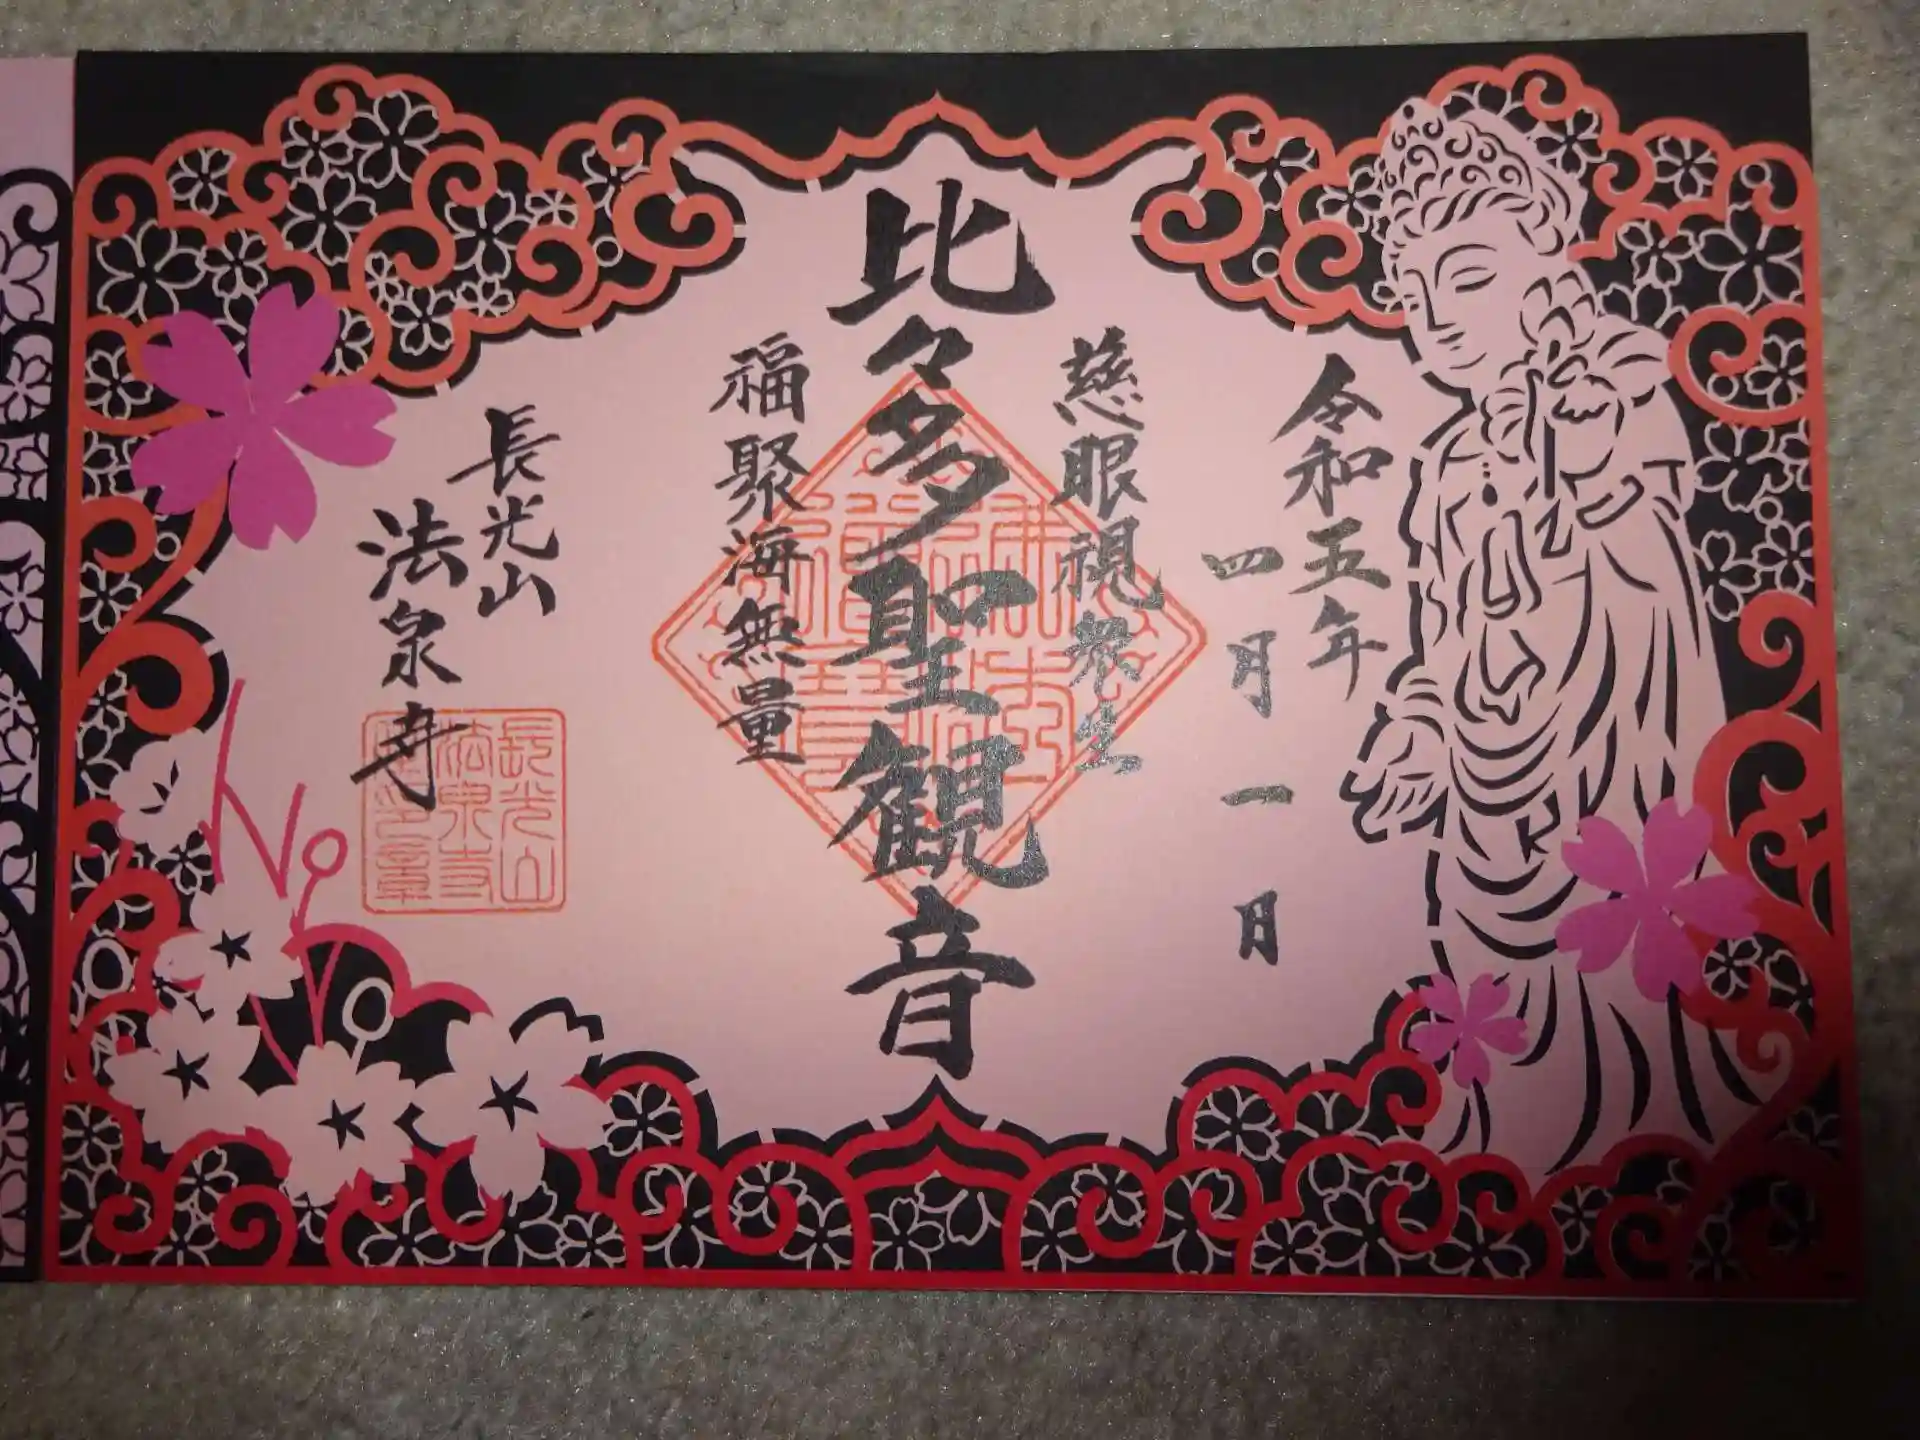 令和五年
四月一日
慈眼視衆生
比々多聖観音
福聚海無量
長光山
法泉寺
佛法僧寶
長光山
法泉寺